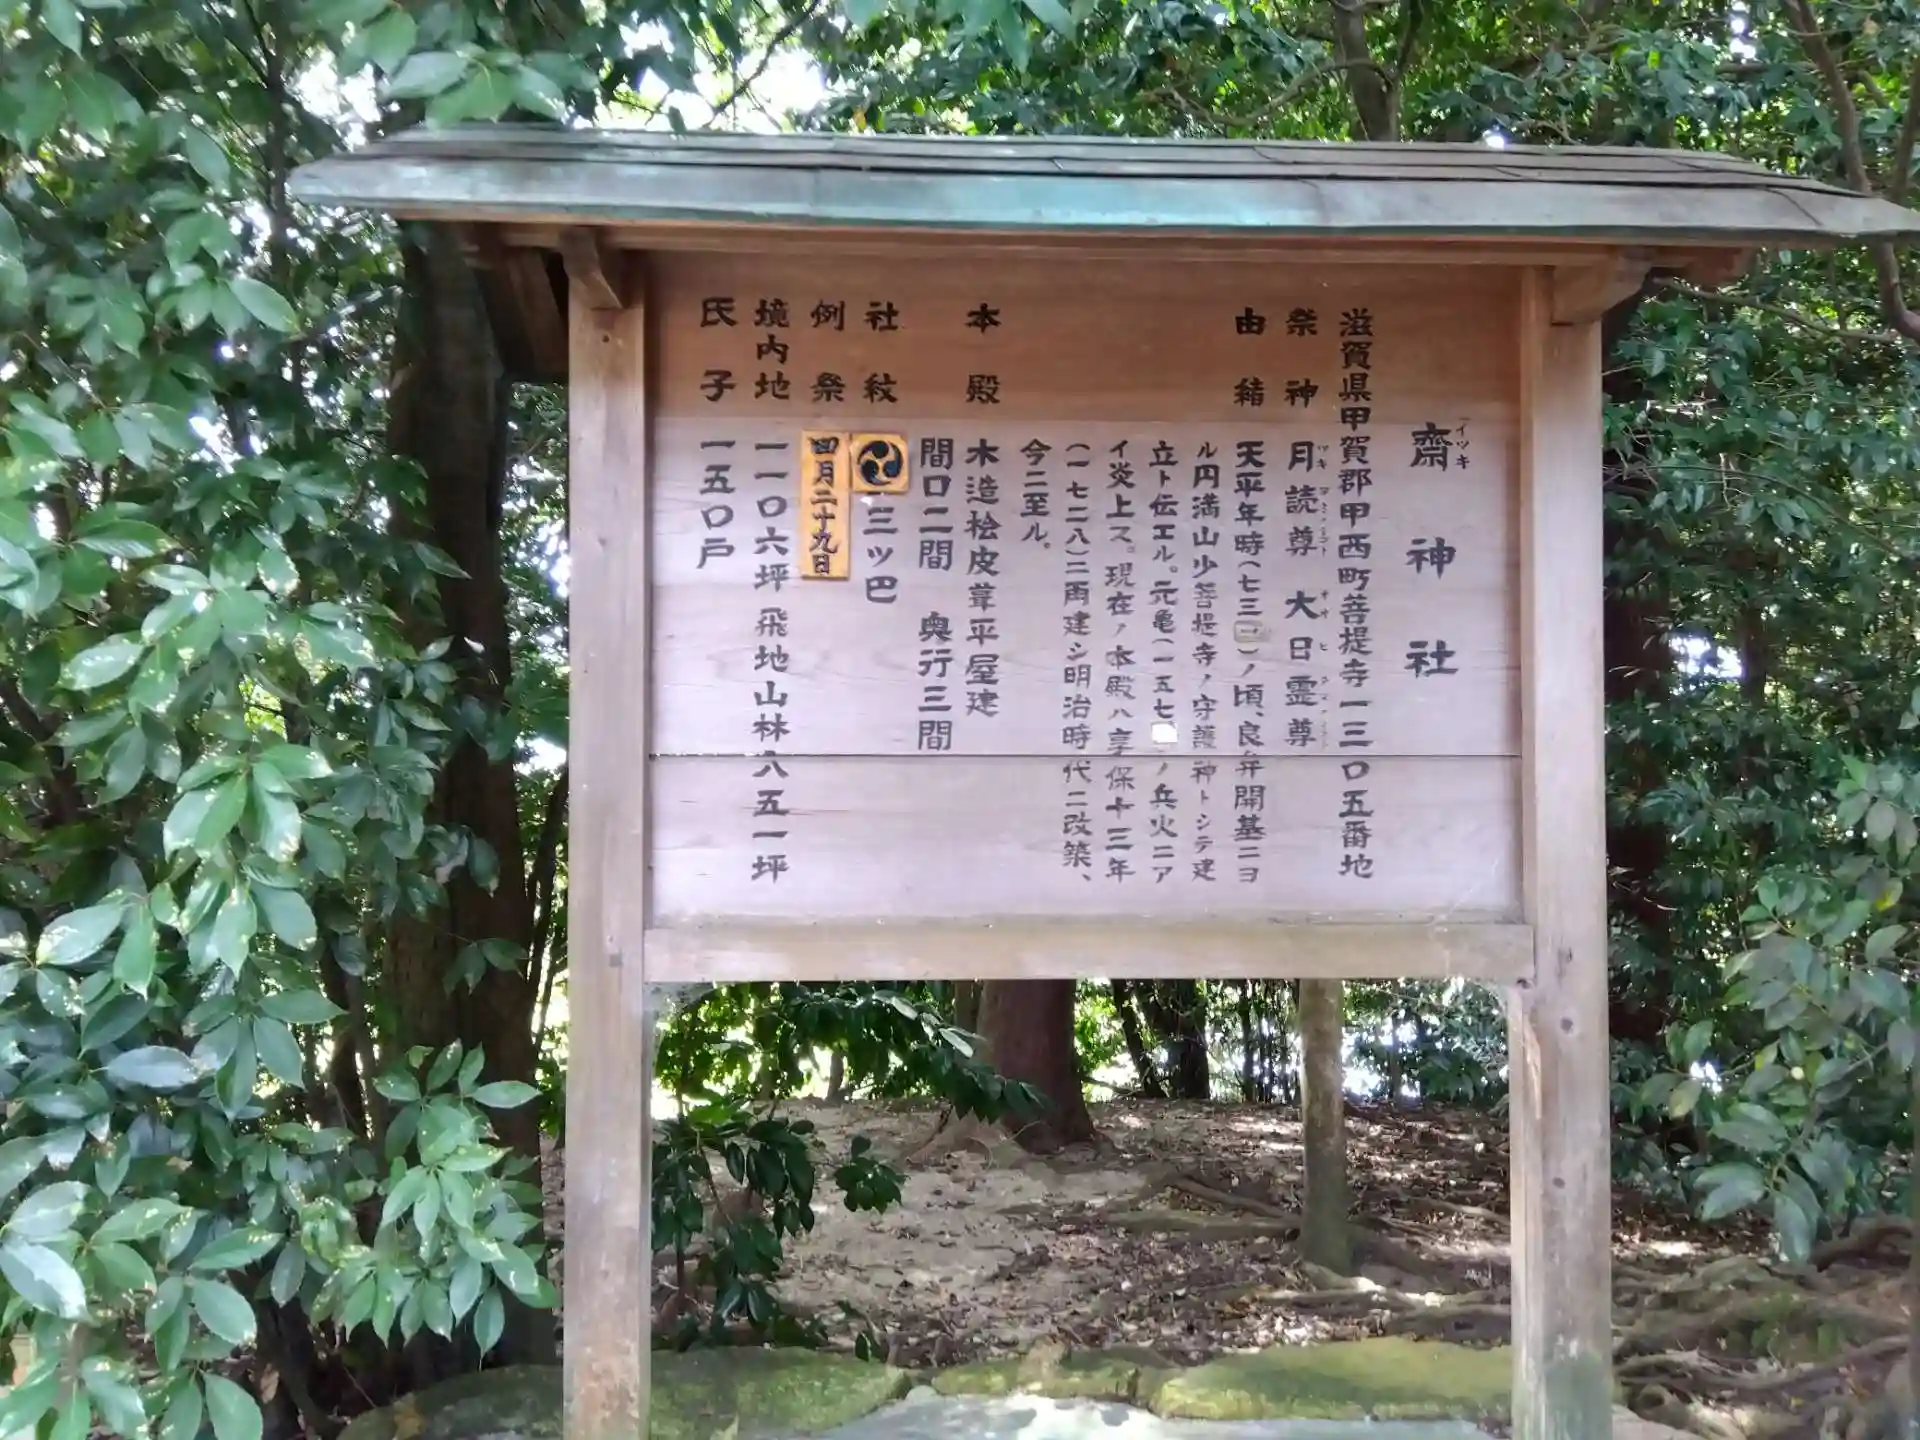 齋神社
イツキ
滋賀県甲賀郡甲西町菩提寺一三〇五番地
祭神 月読尊 大日霊尊
由緒 天平年時(七三一)ノ頃、良弁開基ニヨ
ル円満山少菩提寺ノ守護神トシテ建
立ト伝エル。元亀(一五七 ノ兵火ニア
イ炎上ス。現在ノ本殿ハ享保十三年
(一七二八)ニ再建シ明治時代ニ改築、
今ニ至ル。
本殿 木造桧皮葺平屋建
間口二間 奥行三間
社紋 三ツ巴
例祭 四月二十九日
境内地 一一〇六坪 飛地山林八五一坪
氏子 一五〇戸